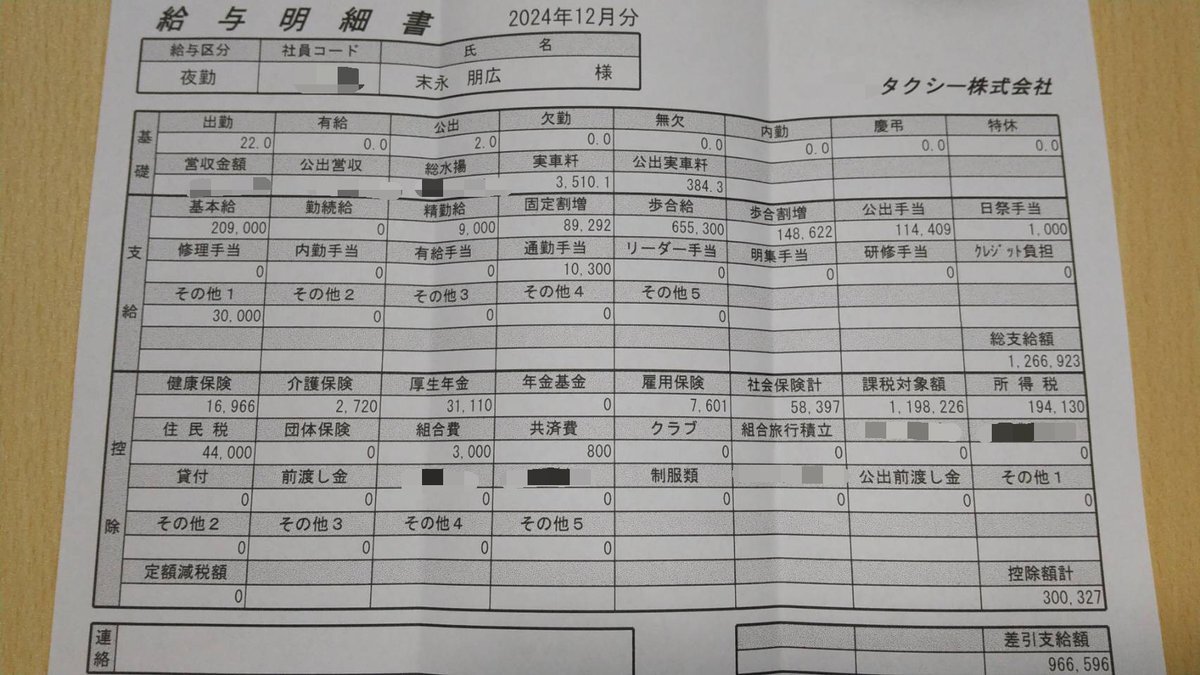 給与明細書 2024年12月分
給与区分 社員コード 氏 名
夜勤 末永 朋広 様
タクシー株式会社
基礎
出勤 有給 公出 欠勤 無欠 内勤 慶弔 特休
22.0 0.0 2.0 0.0 0.0 0.0 0.0 0.0
営収金額 公出営収 総水揚 実車粁 公出実車粁
3,510.1 384.3
支給
基本給 勤続給 精勤給 固定割増 歩合給 歩合割増 公出手当 日祭手当
209,000 0 9,000 89,292 655,300 148,622 114,409 1,000
修理手当 内勤手当 有給手当 通勤手当 リーダー手当 明集手当 研修手当 クレジット負担
0 0 0 10,300 0 0 0 0
その他1 その他2 その他3 その他4 その他5
30,000 0 0 0 0
総支給額
1,266,923
控除
健康保険 介護保険 厚生年金 年金基金 雇用保険 社会保険計 課税対象額 所得税
16,966 2,720 31,110 0 7,601 58,397 1,198,226 194,130
住民税 団体保険 組合費 共済費 クラブ 組合旅行積立
44,000 0 3,000 800 0 0 0 0
貸付 前渡し金 制服類 公出前渡し金 その他1
0 0 0 0 0 0 0 0
その他2 その他3 その他4 その他5
0 0 0 0
定額減税額 控除額計
0 300,327
連絡
差引支給額
966,596